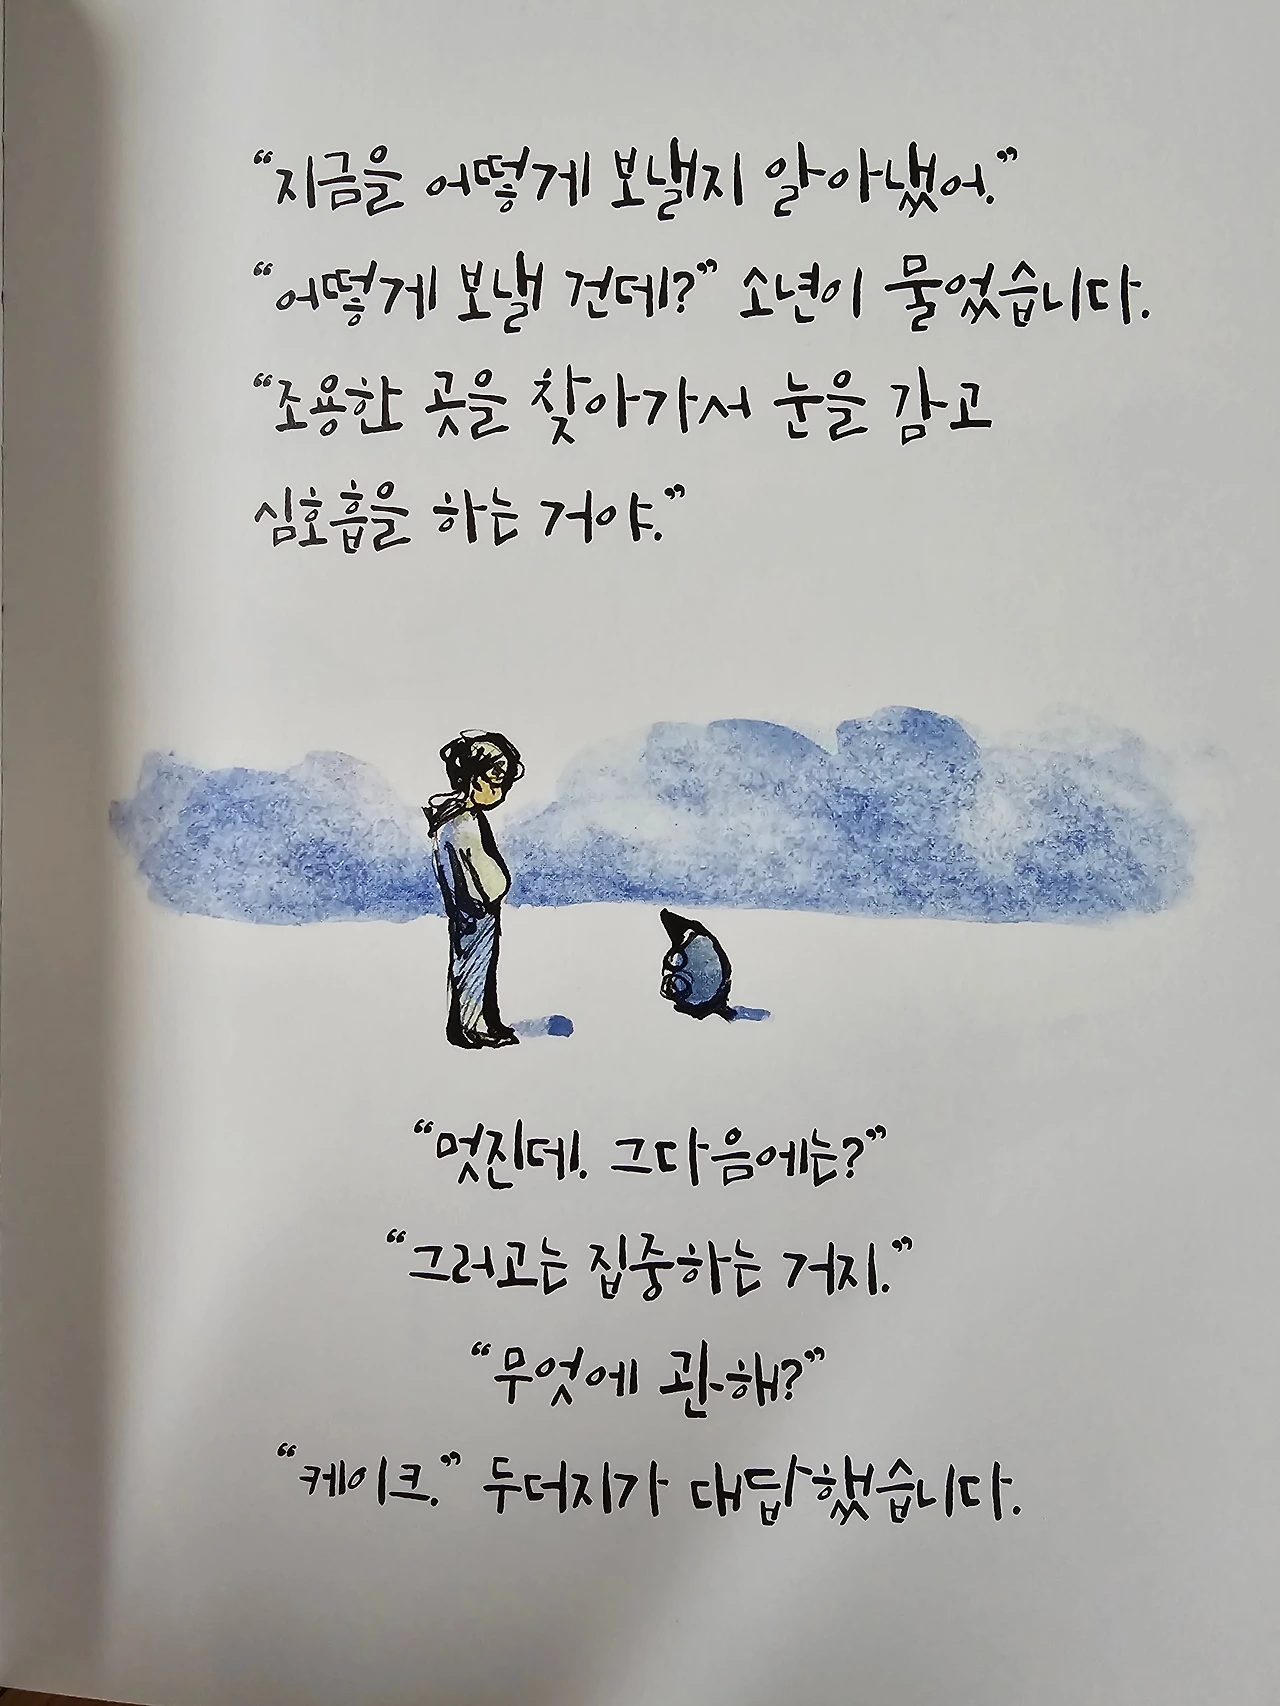 “지금을 어떻게 보낼지 알아냈어.”
“어떻게 보낼 건데?” 소년이 물었습니다.
“조용한 곳을 찾아가서 눈을 감고
심호흡을 하는 거야.”
“멋진데. 그다음에는?”
“그러고는 집중하는 거지.”
“무엇에 관해?”
“케이크.” 두더지가 대답했습니다.